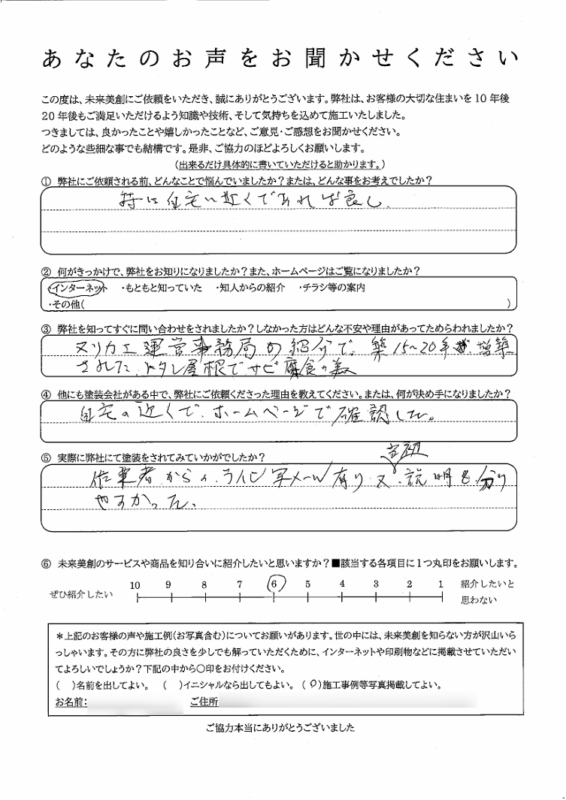 あなたのお声をお聞かせください
この度は、未来美創にご依頼をいただき、誠にありがとうございます。弊社は、お客様の大切な住まいを10年後
20年後もご満足いただけるよう知識や技術、そして気持ちを込めて施工いたしました。
つきましては、良かったことや嬉しかったことなど、ご意見・ご感想をお聞かせください。
どのような些細な事でも結構です。是非、ご協力のほどよろしくお願いします。
（出来るだけ具体的に書いていただけると助かります。）
① 弊社にご依頼される前、どんなことで悩んでいましたか？または、どんな事をお考えでしたか？
特に自宅に近くであれば良し。
② 何がきっかけで、弊社をお知りになりましたか？また、ホームページはご覧になりましたか？
インターネット ・もともと知っていた ・知人からの紹介 ・チラシ等の案内
・その他( )
③ 弊社を知ってすぐに問い合わせをされましたか？しなかった方はどんな不安や理由があってためらわれましたか？
ヌリカエ運営事務局の紹介で、築15〜20年 増築
された、トタン屋根でサビ腐食の為
④ 他にも塗装会社がある中で、弊社にご依頼くださった理由を教えてください。または、何が決め手になりましたか？
自宅の近くで、ホームページで確認した。
⑤ 実際に弊社にて塗装をされてみていかがでしたか？
作業者からの、ライン写メール有り 又、説明も分り
やすかった、
⑥ 未来美創のサービスや商品を知り合いに紹介したいと思いますか？■該当する各項目に1つ丸印をお願いします。
ぜひ紹介したい 10 9 8 7 6 5 4 3 2 1 紹介したいと
思わない
＊上記のお客様の声や施工例（お写真含む）についてお願いがあります。世の中には、未来美創を知らない方が沢山いら
っしゃいます。その方に弊社の良さを少しでも解っていただくために、インターネットや印刷物などに掲載させていただい
てよろしいでしょうか？下記の中から〇印をお付けください。
( )名前を出してよい。 ( )イニシャルなら出してもよい。 (○)施工事例等写真掲載してよい。
お名前: ご住所
ご協力本当にありがとうございました